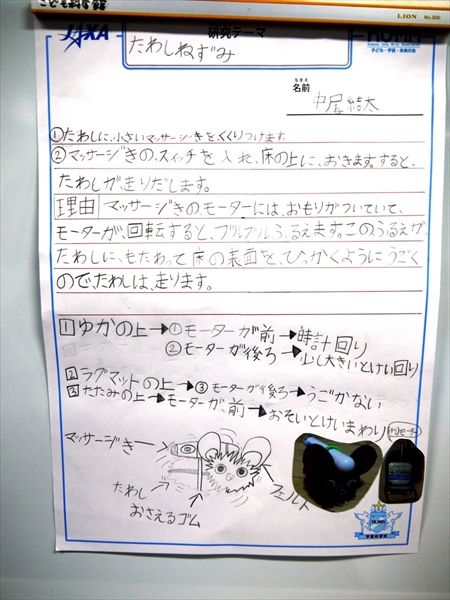 LION No.300
JAXA
研究テーマ
KU-MA
子ども・宇宙・未来の会
たわしねずみ
なまえ
名前 中尾結太
①たわしに、小さいマッサージきを、くくりつけます
②マッサージきの、スイッチを入れ、床の上に、おきます。すると、
たわしが、走りだします。
理由 マッサージきのモーターには、おもりがついていて、
モーターが、回転すると、ブルブルふるえます。このふるえが、
たわしに、もたわって床の表面を、ひっかくようにうごく
ので、たわしは、走ります。
1 ゆかの上→①モーターが前→時計回り
②モーターが後ろ→少し大きいとけい回り
2 ラグマットの上→③モーターが後ろ→うごかない
3 たたみの上→モーターが、前→おそいとけいまわり
マッサージき
たわし
おさえるゴム
フェルト
KU-MA
宇宙の学校